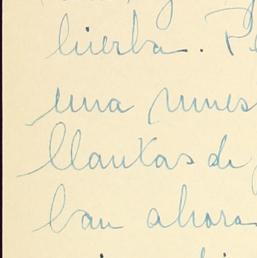 hierba. Pe
una mues
llantas de
ban ahora